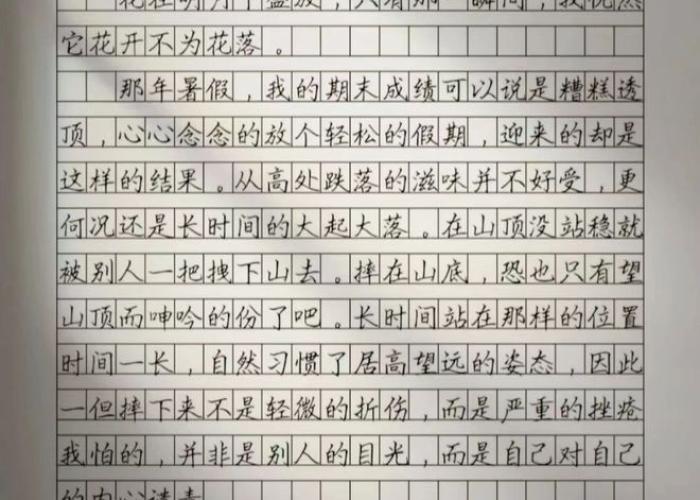 花在明月下盛放，只有那一瞬间，我恍然
它花开不为花落。
那年暑假，我的期末成绩可以说是糟糕透
顶，心心念念的放个轻松的假期，迎来的却是
这样的结果。从高处跌落的滋味并不好受，更
何况还是长时间的大起大落。在山顶没站稳就
被别人一把拽下山去。摔在山底，恐也只有望
山顶而呻吟的份了吧。长时间站在那样的位置
时间一长，自然习惯了居高望远的姿态，因此
一但摔下来不是轻微的折伤，而是严重的挫疮
我怕的，并非是别人的目光，而是自己对自己
的内心谴责